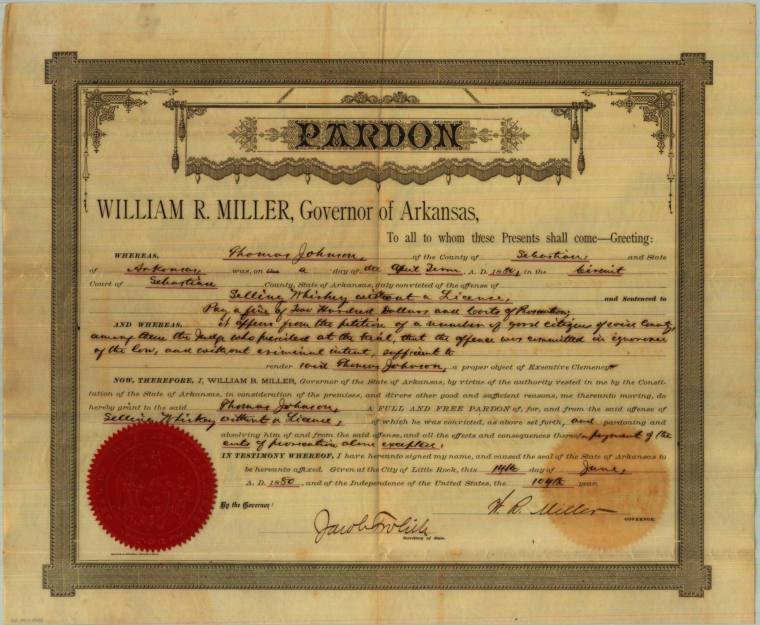 PARDON
WILLIAM R. MILLER, Governor of Arkansas,
To all to whom these Presents shall come—Greeting:
WHEREAS, Thomas Johnson, of the County of Sebastian, and State
of Arkansas was, on a day of the April Term, A. D. 1880, in the Circuit
Court of Sebastian County, State of Arkansas, duly convicted of the offense of
Selling Whiskey without a Licence, and Sentenced to
Pay a fine of Two Hundred Dollars and Costs of Prosecution;
AND WHEREAS, it appears from the petition of a number of good citizens of said County,
among them the Judge who presided at the trial, that the offense was committed in ignorance
of the law, and without criminal intent, sufficient to
render said Thomas Johnson, a proper object of Executive Clemency
NOW, THEREFORE, I, WILLIAM R. MILLER, Governor of the State of Arkansas, by virtue of the authority vested in me by the Consti-
tution of the State of Arkansas, in consideration of the premises, and divers other good and sufficient reasons, me thereunto moving, do
hereby grant to the said Thomas Johnson, A FULL AND FREE PARDON of, for, and from the said offense of
Selling Whiskey without a Licence, of which he was convicted, as above set forth, and pardoning and
absolving him of and from the said offense, and all the effects and consequences thereof, payment of the
costs of prosecution alone excepted.
IN TESTIMONY WHEREOF, I have hereunto signed my name, and caused the seal of the State of Arkansas to
be hereunto affixed. Given at the City of Little Rock, this 14th day of June,
A. D. 1880, and of the Independence of the United States, the 104th year.
By the Governor: W. R. Miller
GOVERNOR.
Jacob Frolich
Secretary of State.